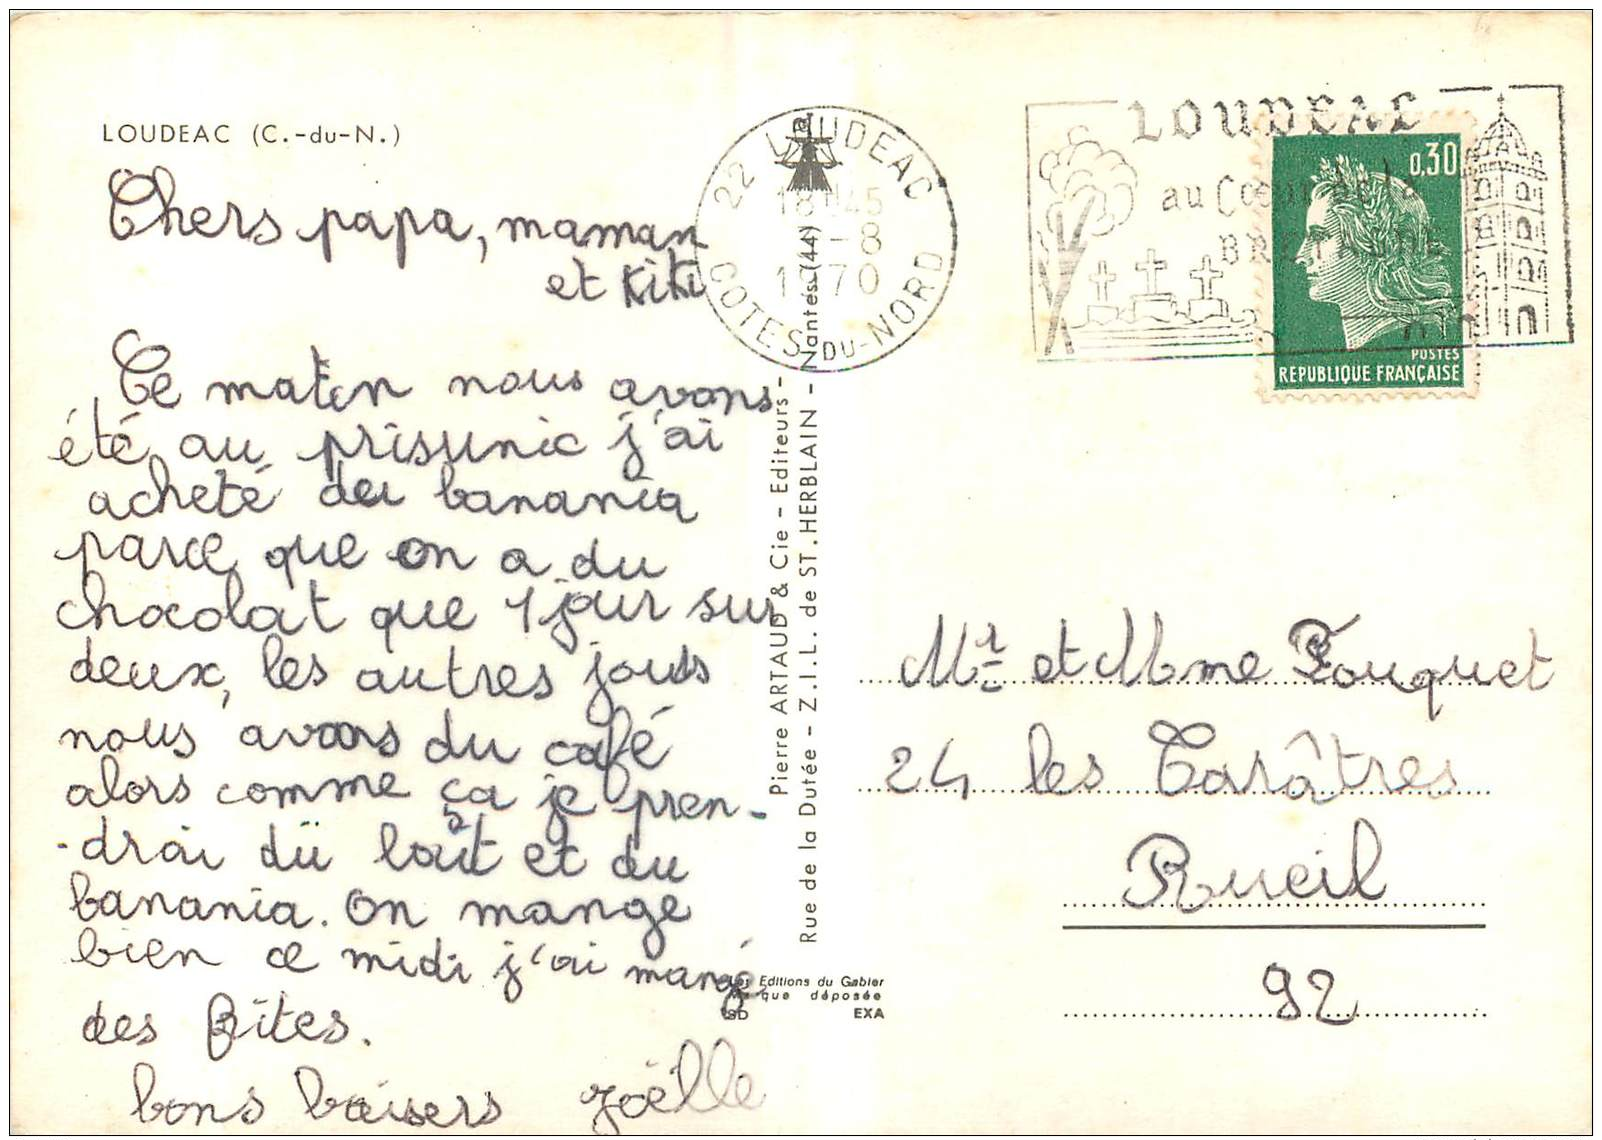 LOUDEAC (C.-du-N.)
Chers papa, maman
et Kiki
Ce matin nous avons
été au prisunic j'ai
acheté du banania
parce que on a du
chocolat que 1 jour sur
deux, les autres jours
nous avons du café
alors comme ça je pren-
-drai du lait et du
banania. on mange
bien ce midi j'ai mangé
des frites.
bons baisers Joëlle
Pierre ARTAUD & Cie - Editeurs -
Rue de la Dutée - Z.I.L. de ST.HERBLAIN - Nantes (44)
Editions du Gabier
que déposée
EXA
22 LOUDEAC
18H45
-8
1970
COTES-DU-NORD
LOUDEAC
au Coeur de la
BRETAGNE
0,30
POSTES
REPUBLIQUE FRANÇAISE
Mr et Mme Fouquet
24 les Tarâtres
Rueil
92